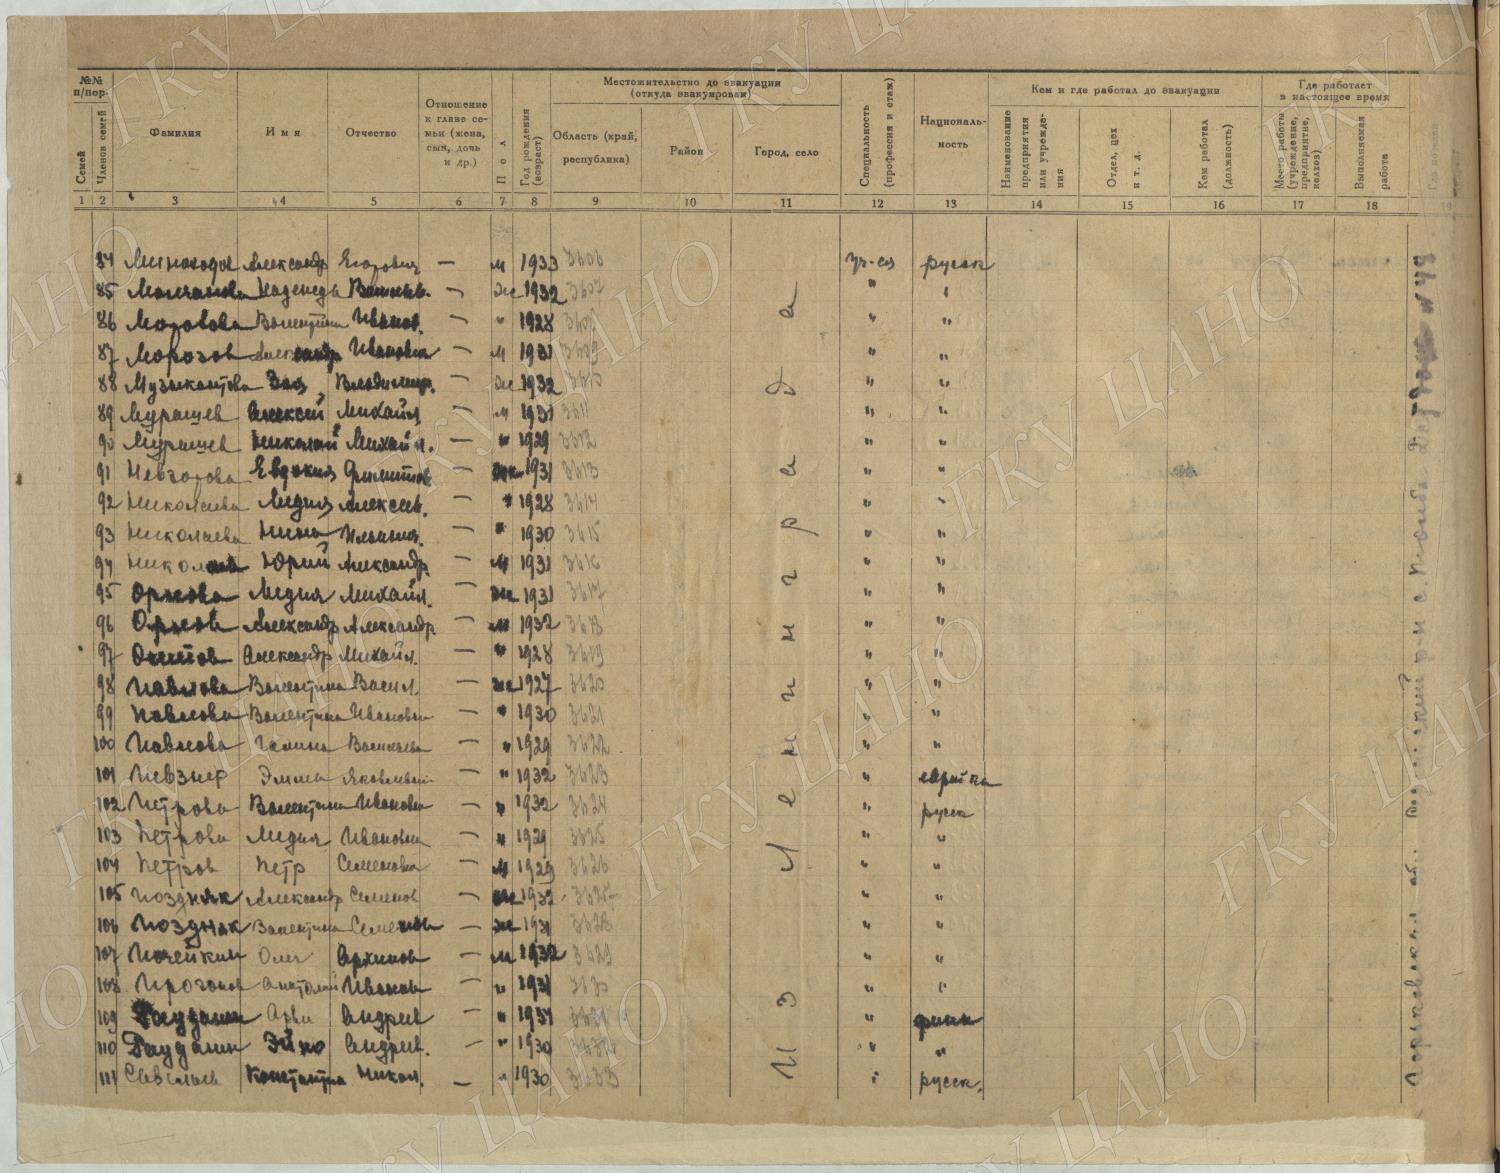 №№ п/пор.
Семей
Членов семей
Фамилия
Имя
Отчество
Отношение к главе семьи (жена, сын, дочь и др.)
Пол
Год рождения (возраст)
Местожительство до эвакуации (откуда эвакуирован)
Область (край, республика)
Район
Город, село
Специальность (профессия и стаж)
Националь-ность
Кем и где работал до эвакуации
Наименование предприятия или учрежде-ния
Отдел, цех и т. д.
Кем работал (должность)
Где работает в настоящее время
Место работы (учреждение, предприятие, колхоз)
Выполняемая работа
1 2 3 4 5 6 7 8 9 10 11 12 13 14 15 16 17 18 19
84 Александр Егорович — м 1933 3606 уч-ся русск
85 Молчанова Надежда — ж 1932 3607 " "
86 Морозова Валентина Иванов. — " 1928 3608 " "
87 Морозов Александр Иванович — м 1931 3609 " "
88 Музыкантова Зоя Владимир. — ж 1932 3610 " "
89 Мурашев Алексей Михайл — м 1931 3611 " "
90 Мурашев Николай Михайл. — " 1929 3612 " "
91 Невзорова Евдокия Филиппов — ж 1931 3613 " "
92 Николаева Лидия Алексеев. — " 1928 3614 " "
93 Николаева Нина Ильинич. — " 1930 3615 " "
94 Юрий Александр. — м 1931 3616 " "
95 Орлова Лидия Михайл. — ж 1931 3617 " "
96 Орлов Александр Александр. — м 1932 3618 " "
97 Осипов Александр Михайл. — " 1928 3619 " "
98 Павлова Валентина Васил. — ж 1927 3620 " "
99 Павлова Валентина Ивановн — " 1930 3621 " "
100 Павлова Галина Васильевн — " 1929 3622 " "
101 Певзнер Эмма Яковлевн — " 1932 3623 " еврейка
102 Петрова Валентина Ивановн — " 1932 3624 " русск
103 Петрова Лидия Ивановн — " 1929 3625 " "
104 Петров Петр Семенович — м 1929 3626 " "
105 Поздняк Александр Семенов — 1932 3627 " "
106 Поздняк Валентина Семенов — ж 1931 3628 " "
107 Почейкин Олег Архипов — м 1932 3629 " "
108 Анатолий Иванов — " 1931 3630 " "
109 Рауданин Арви Андреев — " 1931 3631 " финн
110 Рауданин Эйно Андреев. — " 1930 3632 " "
111 Савельев Константин Никол. — " 1930 3633 " русск.
Из Ленинграда
Горьковская об. р-н с. № 49
ГКУ ЦАНО